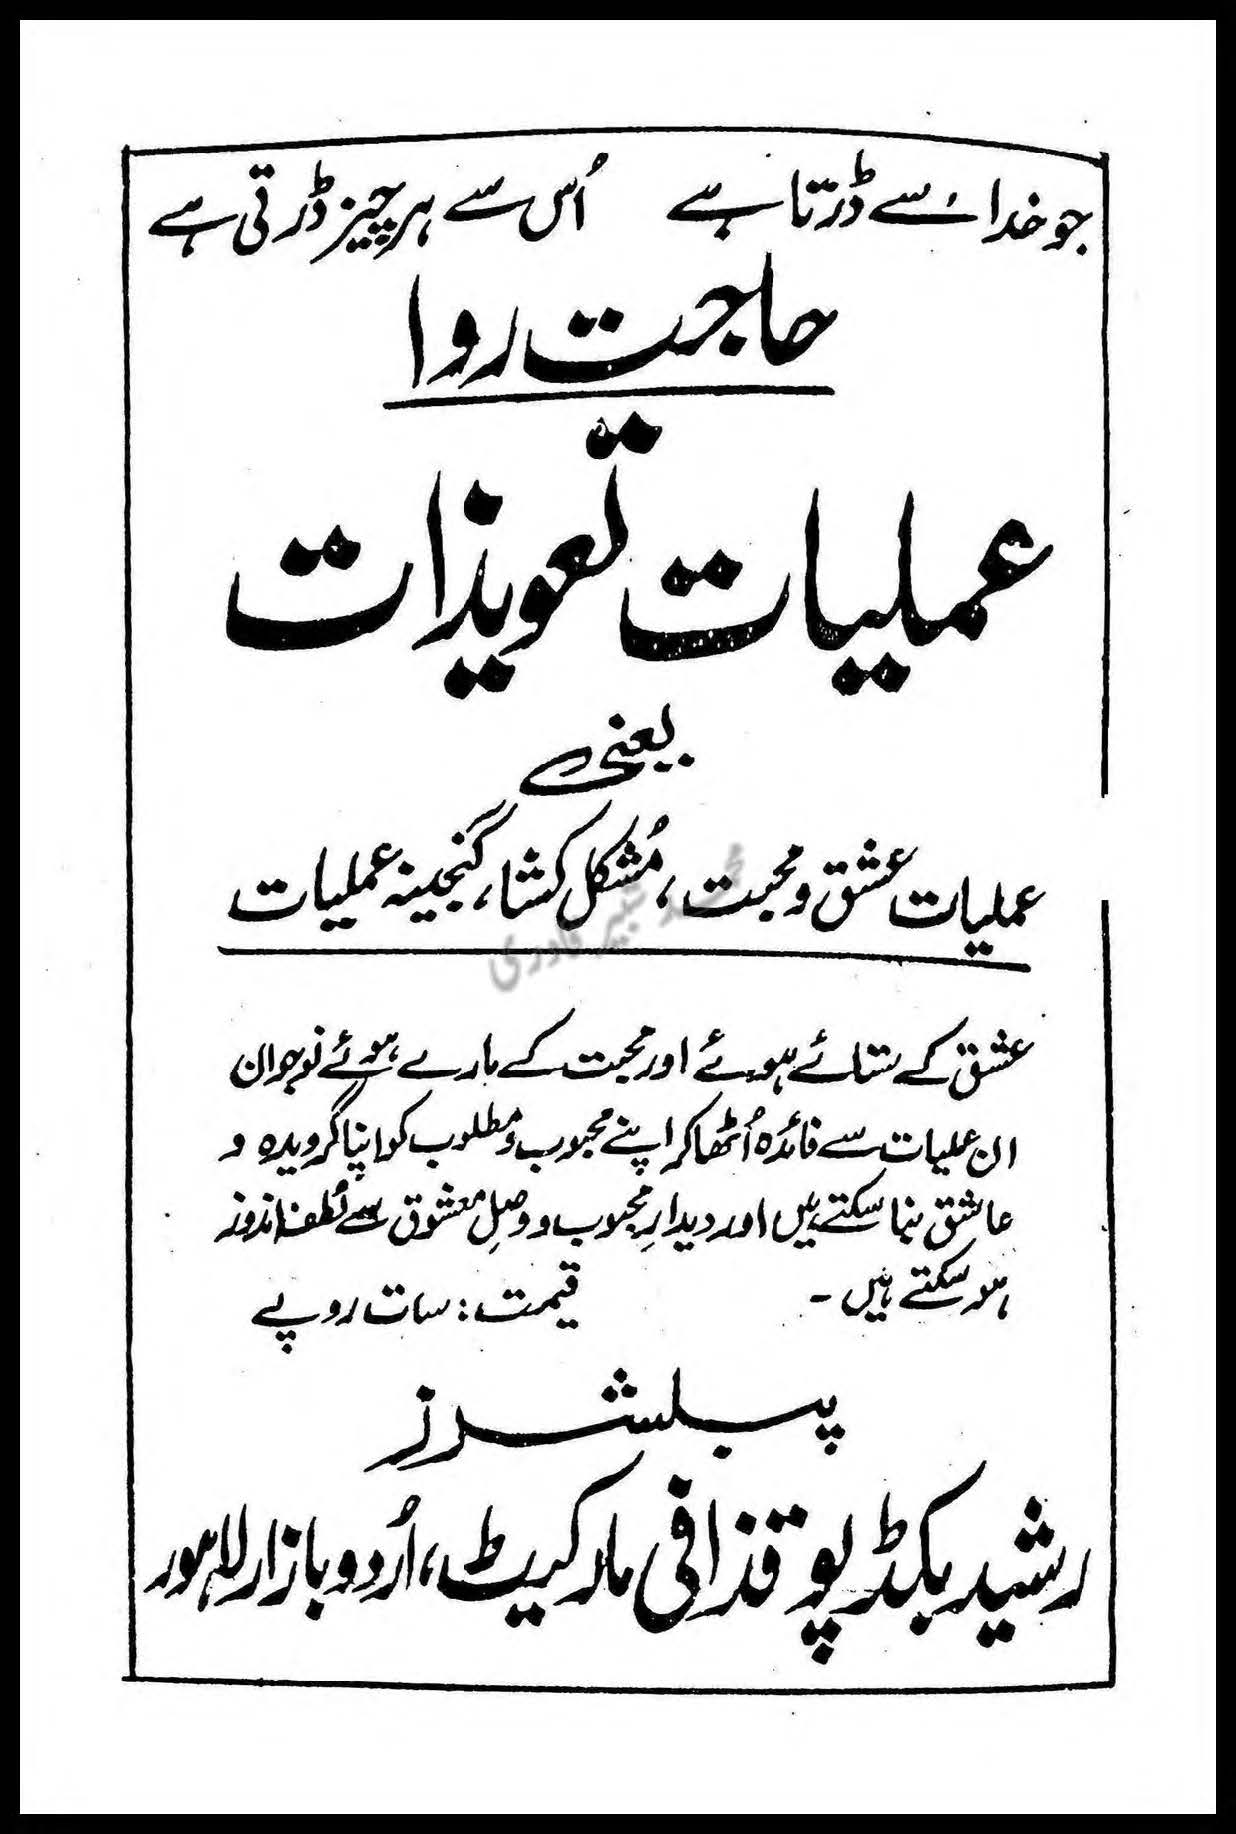 جو خدا سے ڈرتا ہے اُس سے ہر چیز ڈرتی ہے
حاجت روا
عملیات تعویذات
یعنی
عملیات عشق و محبت، مُشکل کشا، گنجینہ عملیات
محمد شبیر قادری
عشق کے ستائے ہوئے اور محبت کے مارے ہوئے نوجوان
ان عملیات سے فائدہ اُٹھا کر اپنے محبوب و مطلوب کو اپنا گرویدہ و
عاشق بنا سکتے ہیں اور دیدارِ محبوب و وصلِ معشوق سے لُطف اندوز
ہو سکتے ہیں ۔ قیمت: سات روپے
پبلشرز
رشید بکڈپو قذافی مارکیٹ، اُردو بازار لاہور